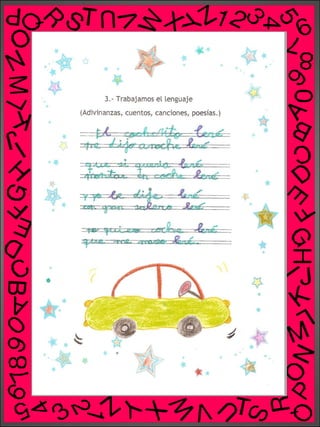 3.- Trabajamos el lenguaje
(Adivinanzas, cuentos, canciones, poesías.)
El cocherito leré
me dijo anoche leré
que si quería leré
montar en coche leré
y yo le dije leré
con gran salero leré
no quiero coche leré
que me mareo leré.